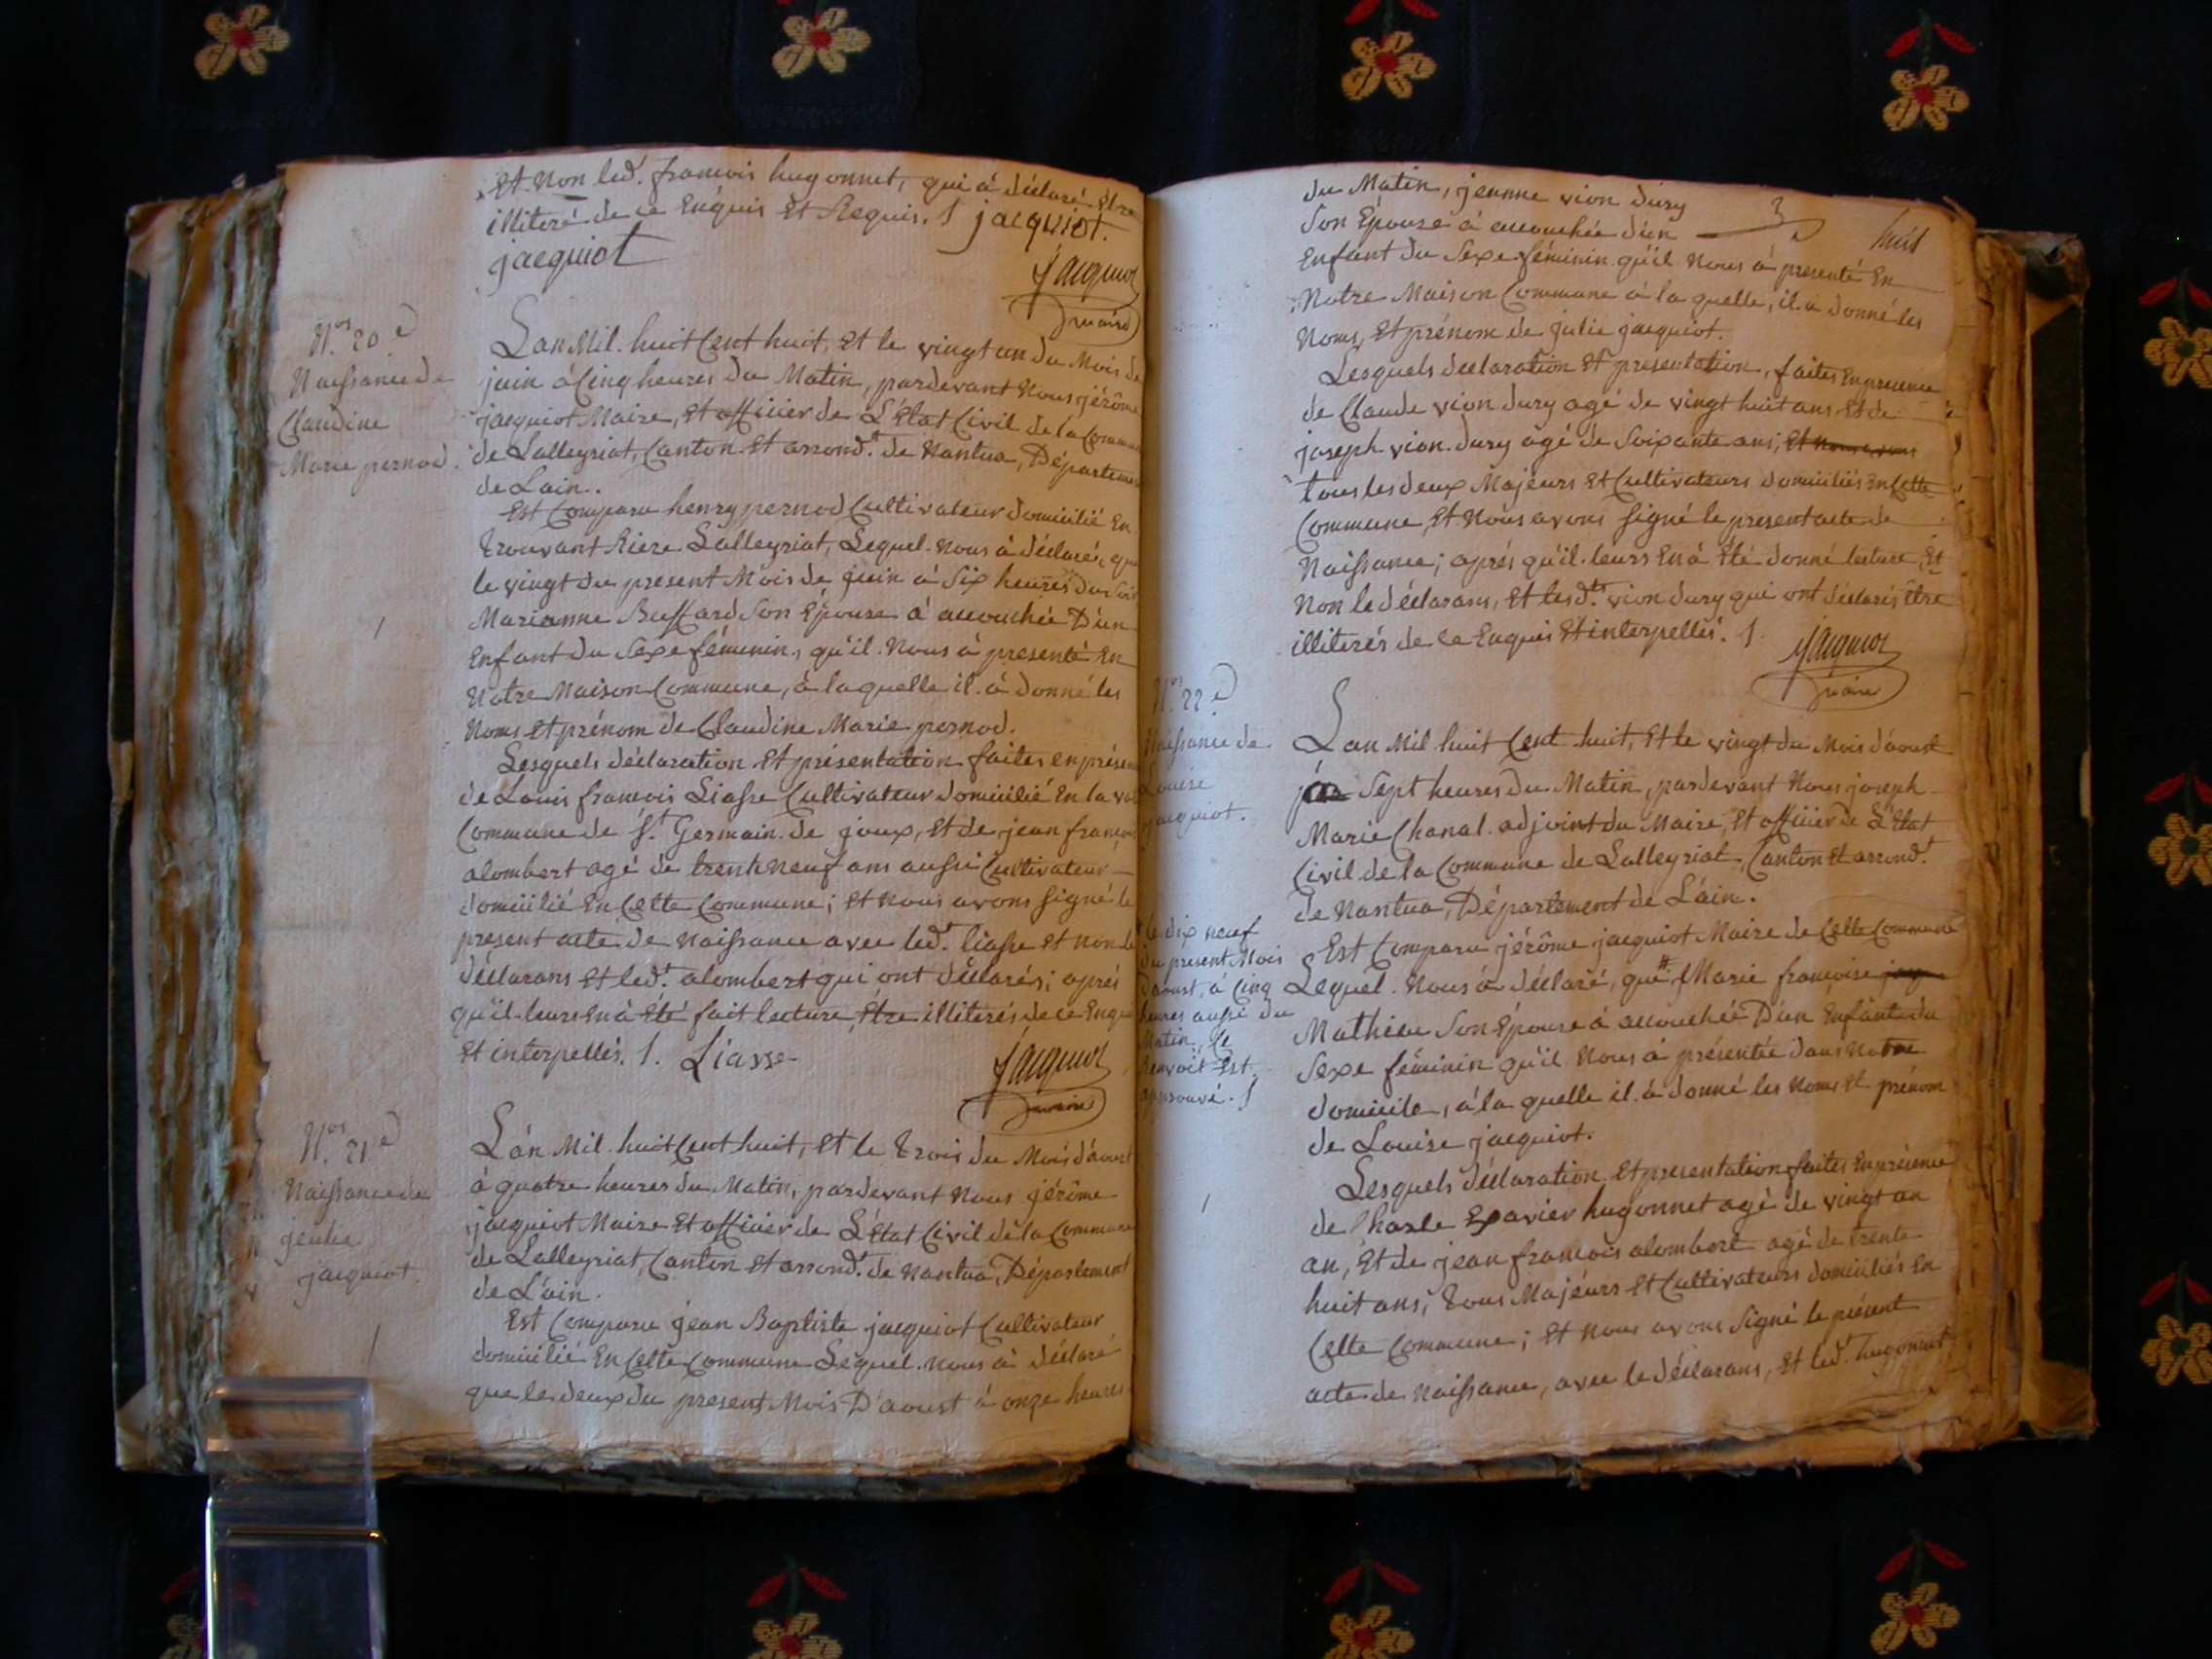 Et Non led.t francois hugonnet, qui à déclaré Etre
illiteré de ce Enquis Et Requis. / jacquiot.
jacquiot
jacquiot
maire
N.os 20 e
Naissance de
Claudine
Marie pernod.
Lan Mil huit Cent huit, Et le vingt un du Mois de
juin à Cinq heures du Matin, pardevant Nous jérôme
jacquiot Maire, Et officier de L'Etat Civil de la Commune
de Lalleyriat, Canton Et arrond.t de Nantua, Département
de Lain.
Est Comparu henry pernod Cultivateur domicilié En
trouvant Riere Lalleyriat, Lequel Nous à déclaré, que
le vingt du present Mois de juin à Six heures du Soir
Marianne Buffard Son Epouse à accouchée D'un
Enfant du Sexe féminin, qu'il Nous à presenté En
Notre Maison Commune, à laquelle il à donné les
Noms Et prénom de Claudine Marie pernod.
Lesquels déclaration Et présentation faites en présence
de Louis francois Liasse Cultivateur domicilié En la
Commune de S.t Germain de joux, Et de jean francois
alombert agé de trente neuf ans aussi Cultivateur
domicilié En Cette Commune; Et Nous avons signé le
present acte de Naissance avec led.t liasse Et non le
déclarans Et led.t alombert qui ont déclarés; aprés
qu'il leurs En à Eté fait lecture, Etre illiterés de ce Enquis
Et interpellés. /. Liasse
jacquiot
maire
N.os 21 e
Naissance de
julie
jacquiot.
L'an Mil huit Cent huit, Et le trois du Mois d'aoust
à quatre heures du Matin, pardevant Nous jérôme
jacquiot Maire Et officier de L'Etat Civil de la Commune
de Lalleyriat, Canton Et arrond.t de Nantua, Département
de L'ain.
Est Comparu jean Baptiste jacquiot Cultivateur
domicilié En Cette Commune Lequel Nous à déclaré
que le deux du present Mois D'aoust à onze heures
huit
du Matin, jeanne vion dury
Son Epouse à accouchée d'un
Enfant du Sexe féminin qu'il Nous à presenté En
Notre Maison Commune à la quelle, il a donné les
Noms, Et prénom de julie jacquiot.
Lesquels declaration Et presentation, faites En presence
de Claude vion dury agé de vingt huit ans Et de
joseph vion dury agé de Soixante ans; Et Nous avons
tous les deux Majeurs Et Cultivateurs domiciliés En Cette
Commune, Et Nous avons signé le present acte de
Naissance; aprés qu'il leurs En à Eté donné lecture, Et
Non le déclarans, Et lesd.ts vion dury qui ont déclarés Etre
illiterés de ce Enquis Et interpellés. /.
jacquiot
maire
N.os 22 e
Naissance de
Louise
jacquiot.
Lan Mil huit Cent huit, Et le vingt du Mois d'aoust
à Sept heures du Matin, pardevant Nous joseph
Marie Chanal adjoint du Maire, Et officier de L'Etat
Civil de la Commune de Lalleyriat, Canton Et arrond.t
de Nantua, Département de L'ain.
Est Comparu jérôme jacquiot Maire de Cette Commune
Lequel Nous à déclaré, que # Marie francoise
Mathieu Son Epouse à accouchée D'un Enfant du
Sexe féminin qu'il Nous à présentée dans Notre
domicile, à la quelle il à donné les Noms Et prénom
de Louise jacquiot.
# le dix neuf
du present Mois
d'aoust, à Cinq
heures aussi du
Matin, Ce
Renvoit Est
approuvé. /
Lesquels déclaration Et presentation faites En présence
de Charle Exavier hugonnet agé de vingt un
an, Et de jean francois alombert agé de trente
huit ans, tous Majeurs Et Cultivateurs domiciliés En
Cette Commune; Et Nous avons Signé le présent
acte de Naissance, avec le déclarans, Et led.t hugonnet